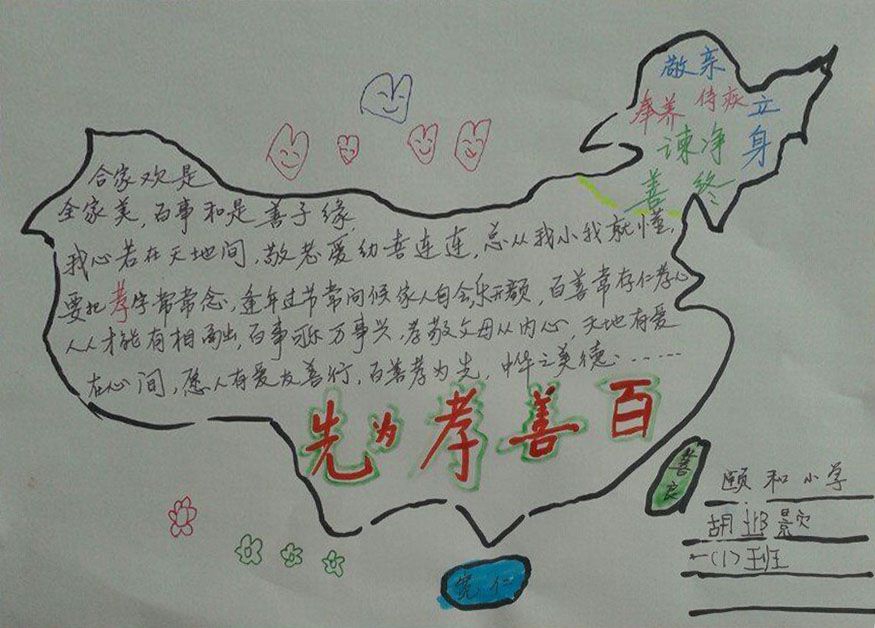 敬亲
奉养 侍疾 立
谏净 身
善终
合家欢是
全家美,百事和是善子缘,
我心若在天地间,敬老爱幼喜连连,总从我小我就懂,
要把孝字常常念,逢年过节常问候家人自会乐开颜,百善常存仁孝心
人人才能有相 出百事 乐万事兴,孝敬父母从内心,天地有爱
在心间,愿人有爱友善行,百善孝为先,中华之美德……
先为孝善百
善良
宽仁
颐和小学
胡
一(1)班